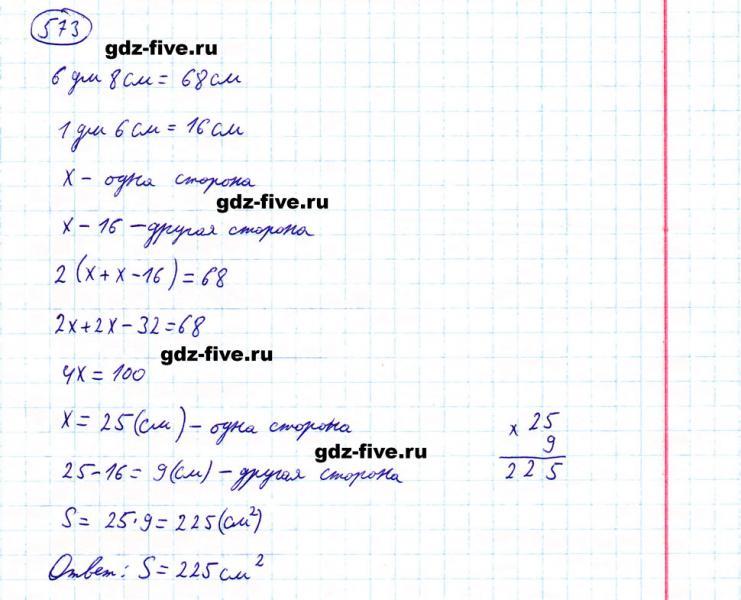 573
gdz-five.ru
6 дм 8 см = 68 см
1 дм 6 см = 16 см
х - одна сторона
gdz-five.ru
х - 16 - другая сторона
2(х + х - 16) = 68
2х + 2х - 32 = 68
gdz-five.ru
4х = 100
х = 25 (см) - одна сторона
gdz-five.ru
25 - 16 = 9 (см) - другая сторона
S = 25 · 9 = 225 (см²)
Ответ: S = 225 см²
× 25
9
225